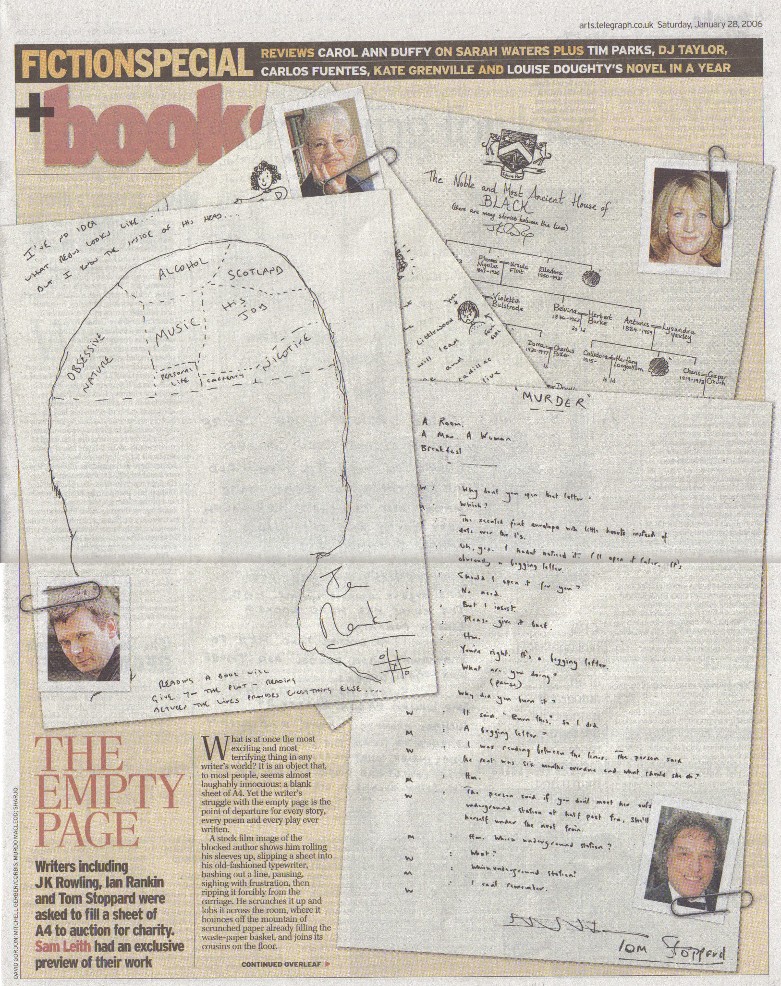 arts.telegraph.co.uk Saturday, January 28, 2006
FICTIONSPECIAL
REVIEWS CAROL ANN DUFFY ON SARAH WATERS PLUS TIM PARKS, DJ TAYLOR,
CARLOS FUENTES, KATE GRENVILLE AND LOUISE DOUGHTY'S NOVEL IN A YEAR
+books
The Noble and Most Ancient House of
BLACK
(there are many stories between the lines)
I'VE NO IDEA
WHAT REBUS LOOKS LIKE...
BUT I KNOW THE INSIDE OF HIS HEAD...
ALCOHOL
SCOTLAND
MUSIC
HIS
JOB
OBSESSIVE
NATURE
PERSONAL
LIFE
NICOTINE
Violetta
Bulstrode
Herbert
Burke
Lysandra
Yaxley
will lead
and
cadillac
live
"MURDER"
A Room.
A Man. A Woman.
Breakfast
W: Why don't you open that letter.
Which?
The scented pink envelope with little hearts instead of
dots over the I's.
Uh, yes. I hadn't noticed it. I'll open it later. It's
obviously a begging letter.
Should I open it for you?
No need.
But I insist.
Please give it back.
Hm.
You're right. It's a begging letter.
What are you doing?
(pause)
Why did you burn it?
W: It said, "Burn this," so I did.
M: A begging letter?
W: I was reading between the lines. The person said
the rent was six months overdue and what should she do?
M: Hm.
W: The person said if you don't meet her outside
underground station at half past ten, she'll
herself under the next train.
M: Hm. Which underground station?
W: What?
M: Which underground station?
W: I can't remember.
Tom Stoppard
Ian
Rankin
READING A BOOK WILL
GIVE YOU THE PLOT - READING
BETWEEN THE LINES PROVIDES EVERYTHING ELSE....
THE
EMPTY
PAGE
Writers including
JK Rowling, Ian Rankin
and Tom Stoppard were
asked to fill a sheet of
A4 to auction for charity.
Sam Leith had an exclusive
preview of their work
What is at once the most
exciting and most
terrifying thing in any
writer's world? It is an object that,
to most people, seems almost
laughably innocuous: a blank
sheet of A4. Yet the writer's
struggle with the empty page is the
point of departure for every story,
every poem and every play ever
written.
A stock film image of the
blocked author shows him rolling
his sleeves up, slipping a sheet into
his old-fashioned typewriter,
bashing out a line, pausing,
sighing with frustration, then
ripping it forcibly from the
carriage. He scrunches it up and
lobs it across the room, where it
bounces off the mountain of
scrunched paper already filling the
waste-paper basket, and joins its
cousins on the floor.
CONTINUED OVERLEAF